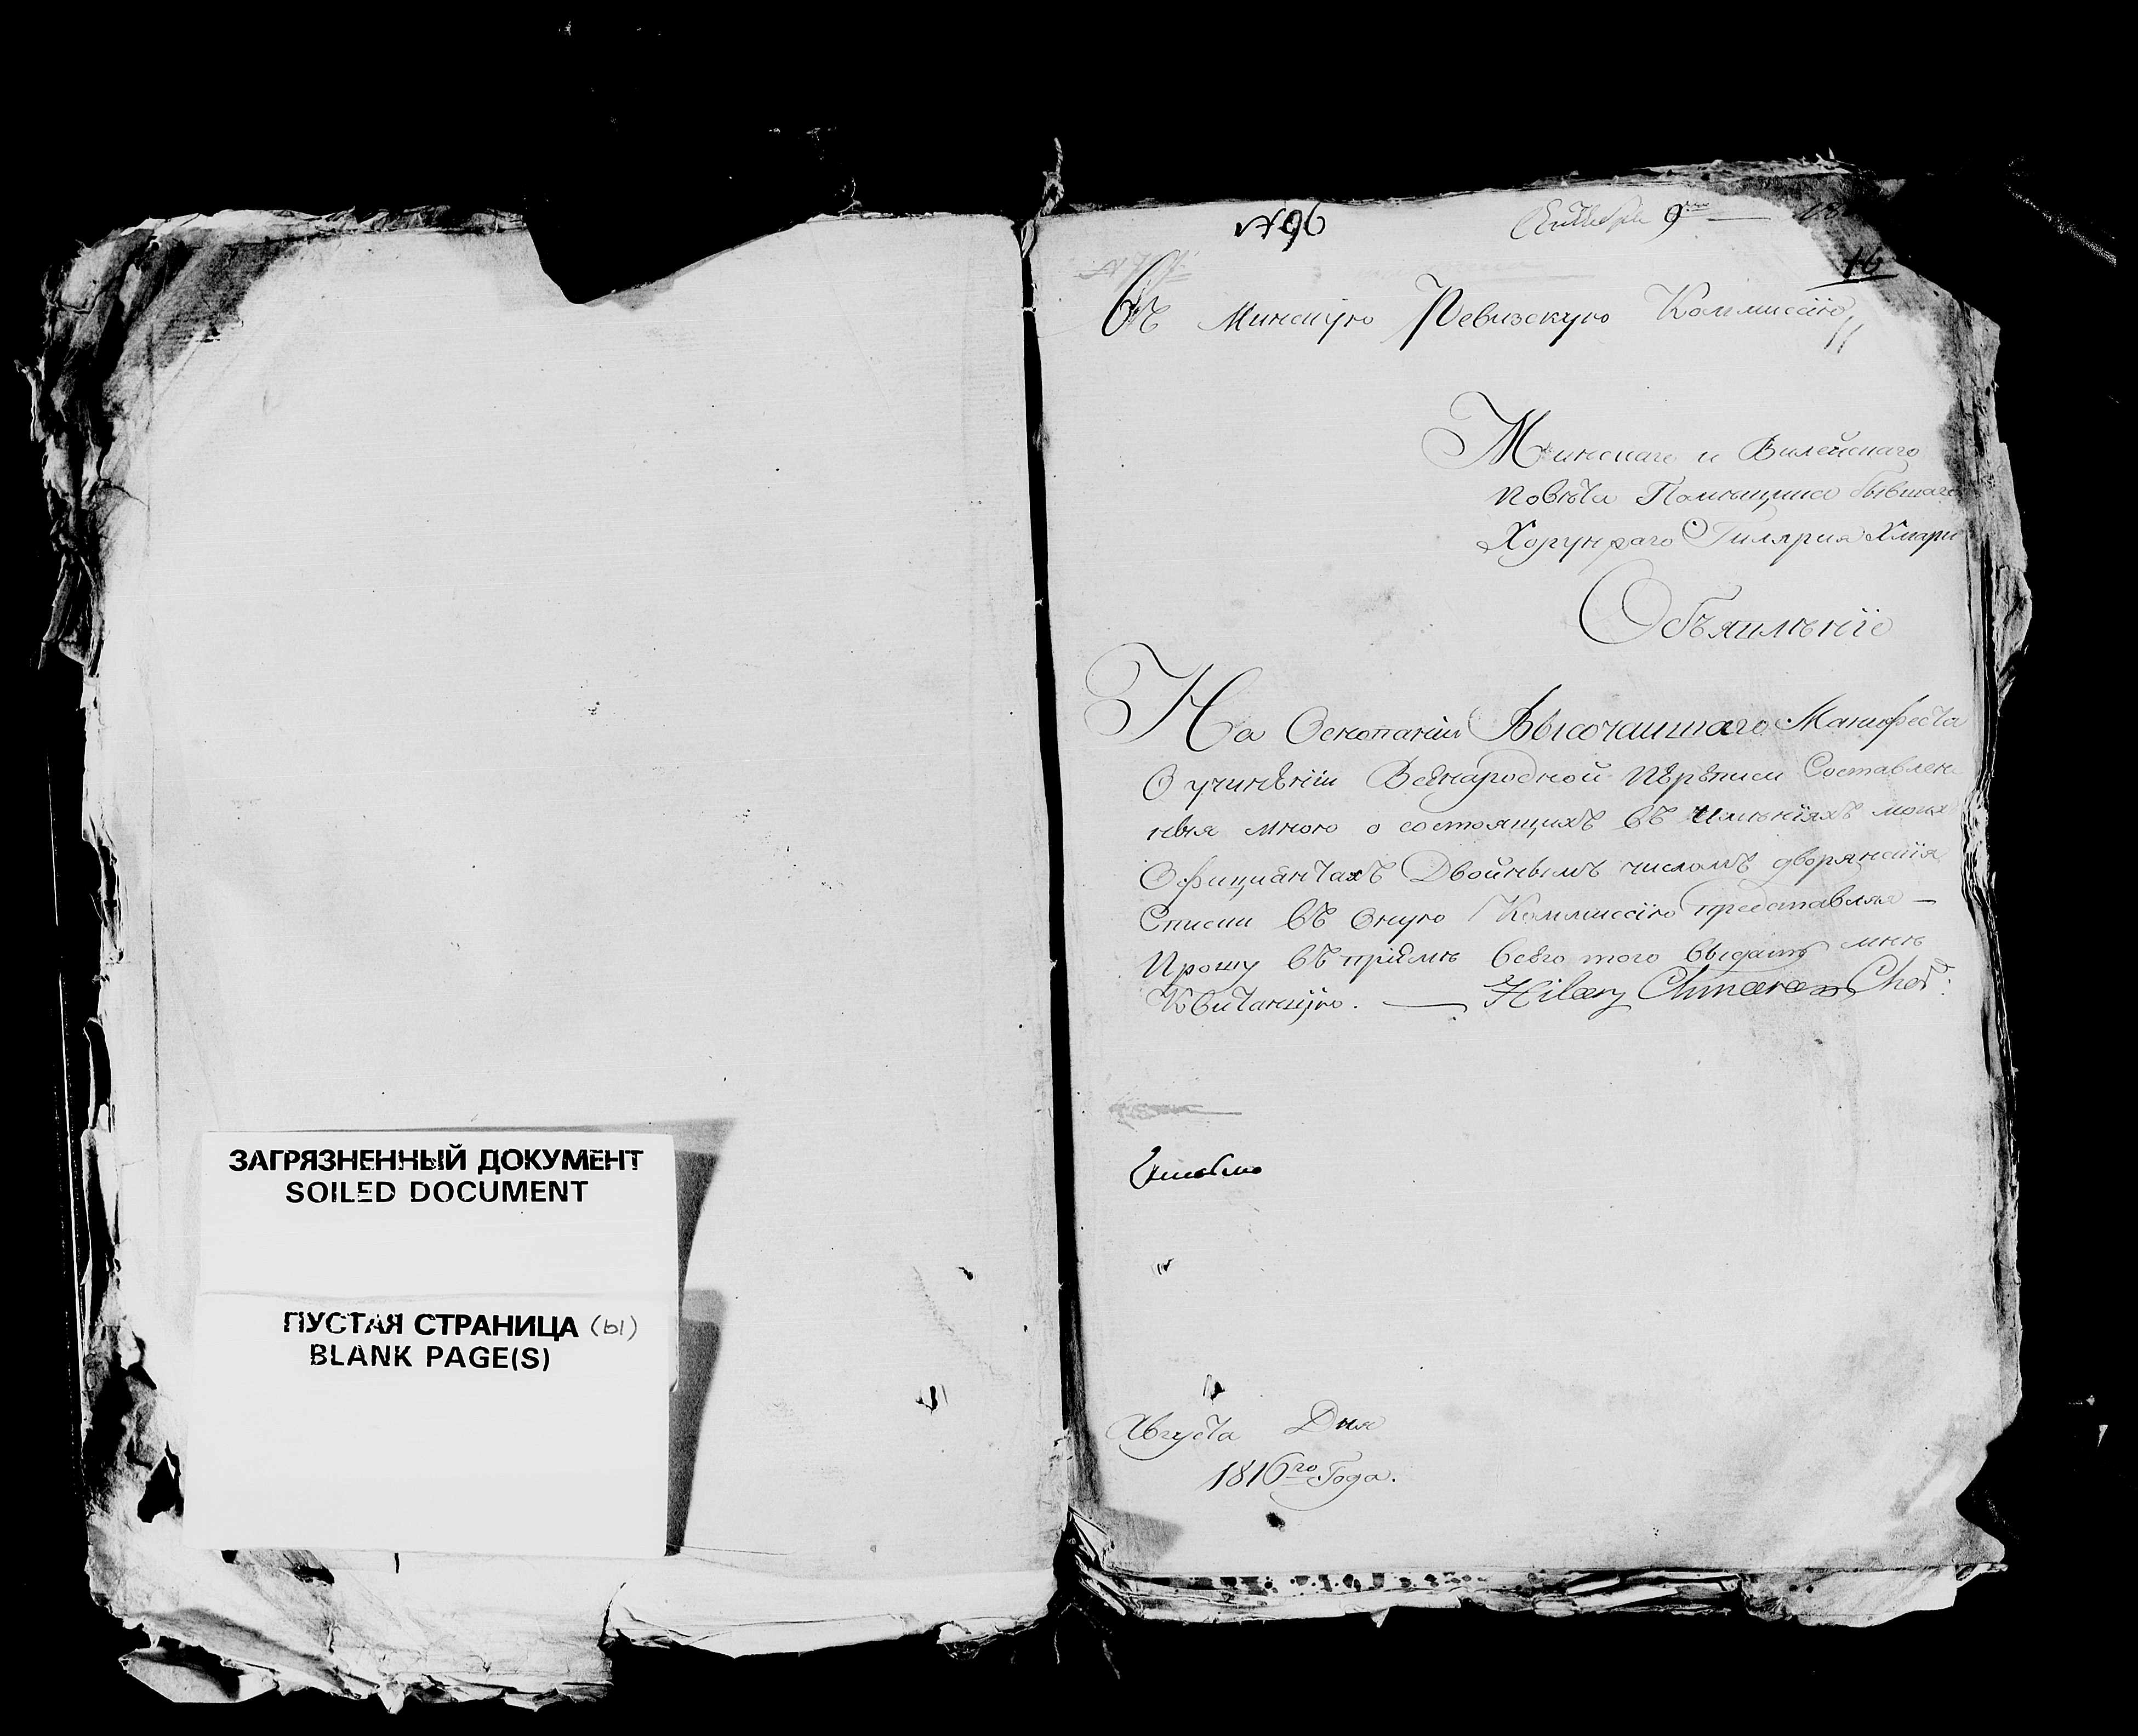 ЗАГРЯЗНЕННЫЙ ДОКУМЕНТ
SOILED DOCUMENT
ПУСТАЯ СТРАНИЦА (ы)
BLANK PAGE(S)
№96
Сентября 9
16
Въ Минскую Ревизскую Коммиссію
Минскаго и Вилейскаго
Повѣта Помѣщика бывшаго
Хорунжаго Гилярия Хмары
Объявлѣніе
На Основаніи Высочаишаго Манифеста
О учинѣніи Всѣнародной пѣрѣписи Составлен
ныя мною о состоящихъ въ Имѣніяхъ моихъ
Официантахъ Двойнымъ числомъ дворянскія
Списки въ Оную Коммиссію представляя —
Прошу въ пріѣмѣ всѣго того выдать мнѣ
Квитанцію. — Hilary Chmara Chor:
Августа Дня
1816го Года.